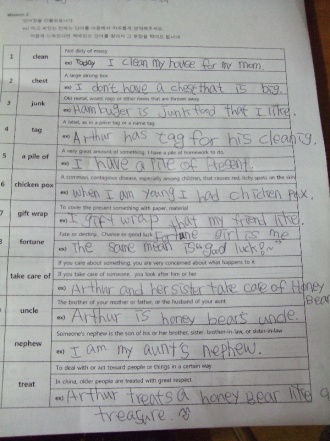 1 clean Not dirty of messy
ex) Today I clean my house for my mom.
2 chest A large strong box
ex) I don't have a chest that is big.
3 junk Old metal, wood, rags or other items that are thrown away
ex) Hambuger is junk food that I like.
4 tag A label, as in a price tag or a name tag.
ex) Arthur has tag for his cleaning.
5 a pile of A very great amount of something. I have a pile of homework to do.
ex) I have a pile of
6 chicken pox A common, contagious disease, especially among children, that causes red, itchy spots on the skin
ex) when I am young I had chicken pox.
7 gift wrap To cover the present something with paper, material
ex) I gift wrap that my friend like.
8 fortune Fate or destiny. Chance or good luck fortune girl is me
ex) The same mean is "good luck!~"
take care of If you care about something, you are very concerned about what happens to it
If you take care of someone, you look after him or her
ex) Arthur and her sister take care of Honey Bear
uncle The brother of your mother or father, or the husband of your aunt.
ex) Arthur is honey bear's uncle.
nephew Someone's nephew is the son of his or her brother, sister, brother-in-law, or sister-in-law
ex) I am my aunt's nephew.
treat To deal with or act toward people or things in a certain way.
In china, older people are treated with great respect.
ex) Arthur treats a honey Bear like a
treasure.